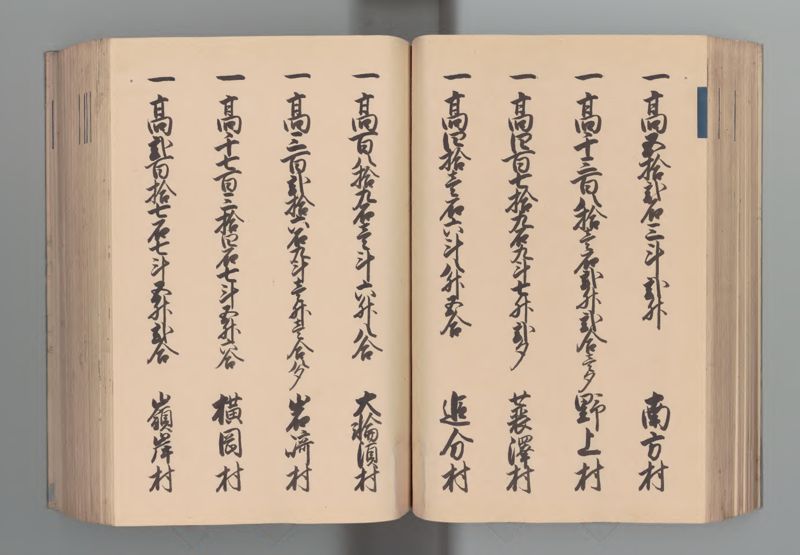 一高五拾弐石三斗弐升 南方村
一高千三百八拾壱石弐升弐合壱夕 野上村
一高四百七拾九石九斗七升弐夕 蓑澤村
一高四拾壱石六斗八升五合 追分村
一高百八拾九石壱斗六升八合 大輪須村
一高三百弐拾六石九斗壱升壱合八夕 岩﨑村
一高千七百三拾四石七斗五升六合 横岡村
一高弐百拾七石七斗五升弐合 嶺岸村